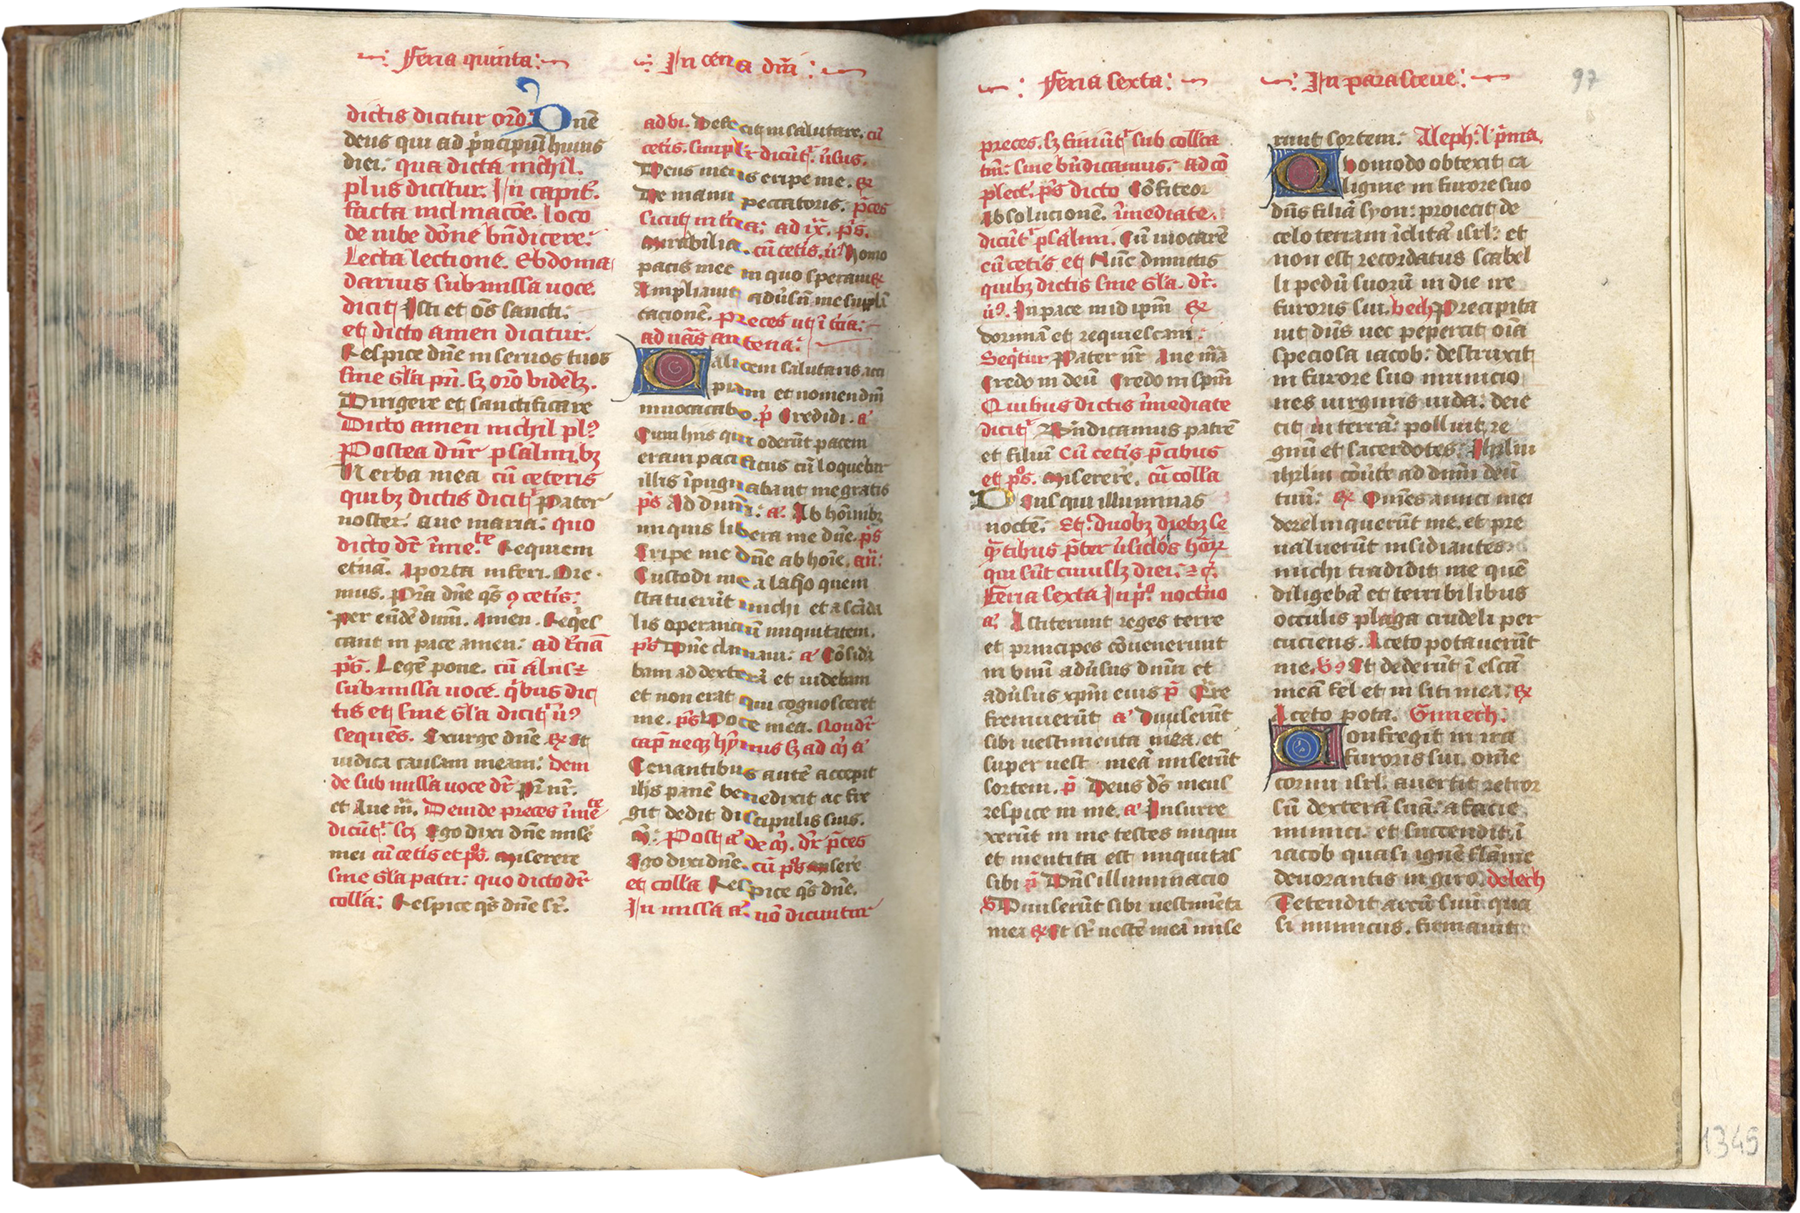 Feria quinta:
In cena dñi:
dictis dicitur orõ. Dñe
deus qui ad p̃ncipiũ huius
diei: qua dicta nichil
plus dicitur. In capit.
facta inclinacõe. loco
de iube dõne bñdicere:
Lecta lectione. Ebdoma
darius submissa uoce.
dicit Isti et oẽs sancti:
et dicto amen dicitur.
Respice dñe in seruos tuos
sine gl̃a pr̃i. sꝫ orõ uidelꝫ.
Dirigere et sanctificare
Dicto amen nichil plꝰ
Postea dñr psalmibꝫ
Uerba mea cũ ceteris
quibꝫ dictis dicit᷑ Pater
noster: Aue maria: quo
dicto dr̃ ĩme.te Requiem
et̃nã. A porta inferi. Ore
mus. Pr̃ia dñe q̃s ꝯ cetis:
Per eũdẽ dñm. Amen. Req̃es
cant in pace amen: ad t̃ciã
p̃s. Legẽ pone. cũ alijs
submissa uoce. q̃bus dic
tis et sine gl̃a dicit᷑ ũꝰ
sequẽs. Exurge dñe ℟ Et
iudica causam meam: dein
de submissa uoce dr̃ pr̃ nr̃.
et Aue m̃. Deinde preces ĩmete
dicũt᷑ scꝫ Ego dixi dñe mise
mei cũ cetis et p̃s. Miserere
sine gl̃a patri: quo dicto dr̃
colla: Respice q̃s dñe sr̃.
ad vi. Defecit in salutare. cũ
cetis. simplr̃ dicũt᷑. ũsus.
Deus meus eripe me. ℟
De manu peccatoris. p̃ces
sicut in t̃cia: ad ix. p̃s.
Mirabilia. cũ cetis. ũꝰ Homo
pacis mee in quo speraui ℟
Ampliauit adũsũ me suplã
tacionẽ. preces ut ĩ t̃cia:
ad uãs antena:
Calicem salutaris acci
piam et nomen dñi
inuocabo. p̃ Credidi. a᷑
Cum hiis qui oderũt pacem
eram pacificus cũ loquebar
illis ĩpugnabant me gratis
p̃s Ad dñm: a᷑. Ab hõinibꝫ
iniquis libera me dñe. p̃s
Eripe me dñe ab hoĩe. añ:
Custodi me a laq̃o quem
statuerũt michi et a scãda
lis operanciũ iniquitatem.
p̃s Dñe clamaui: a᷑ Cõside
bam ad dexterã et uidebam
et non erat qui cognosceret
me. p̃s Voce mea. Nõ dr̃
cap̃ neqꝫ hỹmnus sꝫ ad m̃ a᷑
Cenantibus autẽ accepit
ihs panẽ benedixit ac fre
git dedit discipulis suis.
m̃: Post a᷑ de m̃. dr̃ p̃ces
Ego dixi dñe. cũ p̃s Miserere
et colla Respice q̃s dñe.
In missa a᷑ nõ dicuntur
Feria sexta:
In parasceue:
97
preces. sꝫ finiũt᷑ sub collcta
tñ: sine bñdicamus: ad cõ
plect. p̃s dicto Cõfiteor
Absolucionẽ. ĩmediate.
dicũt᷑ psalmi. Cũ inuocarẽ
cũ cetis et Nũc dimittis
quibꝫ dictis sine gl̃a. dr̃.
ũꝰ. In pace in id ipm̃ ℟
dormiã et requiescam:
Seq̃tur Pater nr̃ Aue m̃ia
Credo in deũ Credo in spm̃
Quibus dictis ĩmediate
dicit᷑ Bñdicamus patrẽ
et filiũ cũ cetis p̃cibus
et p̃s. Miserere. cũ colla
Deus qui illuminas
noctẽ. Et duobꝫ diebꝫ se
q̃tibus p̃ter ũsiclos hõrꝫ
qui sũt cuiuslꝫ diei. ⁊c̃.
Feria sexta In p̃o. noct̃no
a᷑ Astiterunt reges terre
et principes cõuenerunt
in unũ adũsus dñm et
adũsus xpm̃ eius p̃ Q̃re
fremuerũt a᷑ Diuiserũt
sibi uestimenta mea. et
super uest meã miserũt
sortem. p̃ Deus ds̃ meus
respice in me. a᷑ Insurre
xerũt in me testes iniqui
et mentita est iniquitas
sibi p̃ Dñs illuminacio
ũ Diuiserũt sibi uestimẽta
mea ℟ Et sr̃ uestẽ meã mise
runt sortem: Aleph: l᷑ p̃ma.
Quomodo obtexit ca
ligine in furore suo
dñs filiã syon: proiecit de
celo terram ĩclitã isrl̃: et
non est recordatus scabel
li pedũ suorũ in die ire
furoris sui. beth Precipita
uit dñs nec pepercit oĩa
speciosa iacob: destruxit
in furore suo municio
nes uirginis iuda. deie
cit in terrã: polluit re
gnũ et sacerdotes. Ihrlm
ihrlm cõũte ad dñm deũ
tuũ: ℟ Om̃es amici mei
derelinquerũt me. et pre
ualuerũt insidiantes
michi tradidit me quẽ
diligebã et terribilibus
occulis plaga crudeli per
cuciens. Aceto potauerũt
me. ũꝰ Et dederũt ĩ escã
meã fel et in siti mea: ℟
Aceto pota. Gimeth:
Confregit in ira
furoris sui. om̃e
cornu isrl̃. auertit retror
sũ dexterã suã. a facie
inimici: et succendit ĩ
iacob quasi ignẽ flãme
deuorantis in giro. deleth
Tetendit arcũ suũ qua
si inimicus. firmauit
1345